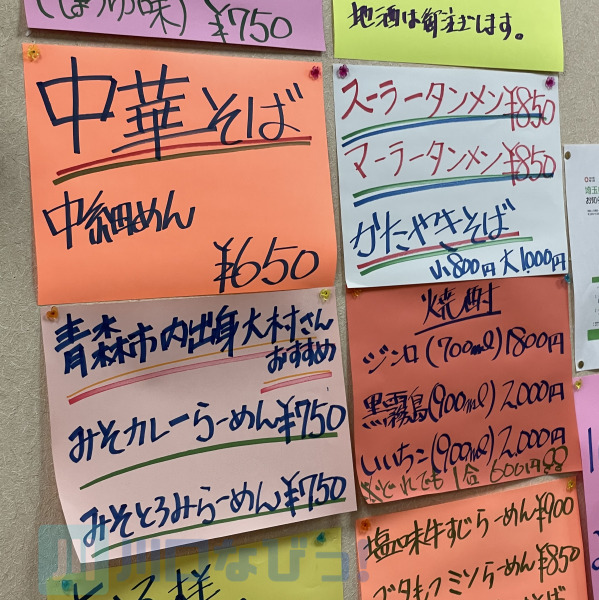 (しょうゆ味) ¥750
地酒は御座います。
中華そば
中細めん
¥650
スーラータンメン¥850
マーラータンメン¥850
かたやきそば
小800円大1000円
青森市内出身大村さん
おすすめ
みそカレーらーめん¥750
みそとろみらーめん¥750
焼酎
ジンロ(700ml)1800円
黒霧島(900ml)2,000円
いいちこ(900ml)2,000円
※どれでも1合600円
塩味牛すじらーめん¥900
ブタもつミソらーめん¥850
埼玉
川口なびっ!